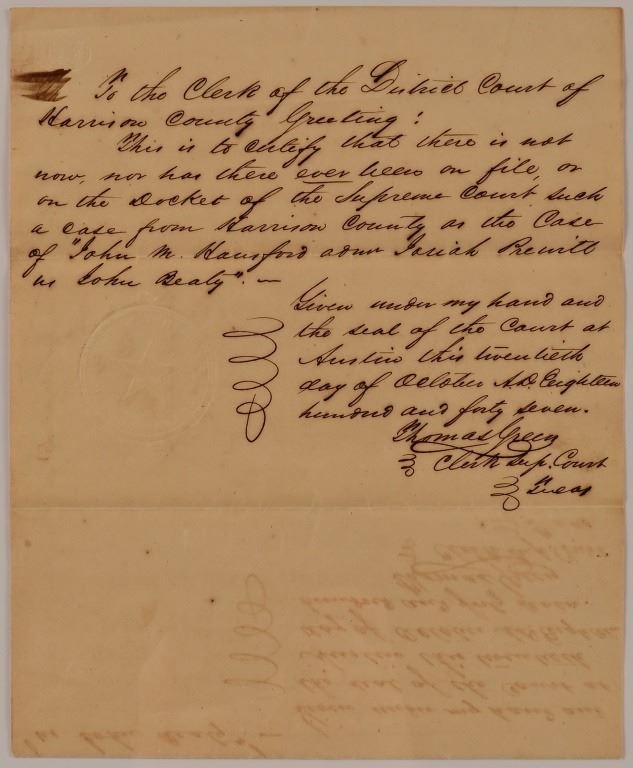 To the Clerk of the District Court of
Harrison County Greeting:
This is to certify that there is not
now, nor has there ever been on file, or
on the Docket of the Supreme Court such
a case from Harrison County as the Case
of "John M. Hansford admr Josiah Prewitt
vs John Bealy". —
Given under my hand and
the seal of the Court at
Austin this twentieth
day of October A.D. Eighteen
hundred and forty seven.
Thomas Green
Clerk Sup. Court
Texas